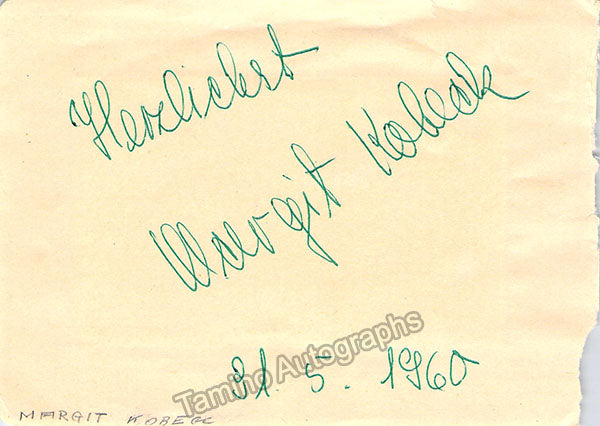 Herzlichst
Margit Kobeck
31. 5. 1960
Tamino Autographs
MARGIT KOBECK